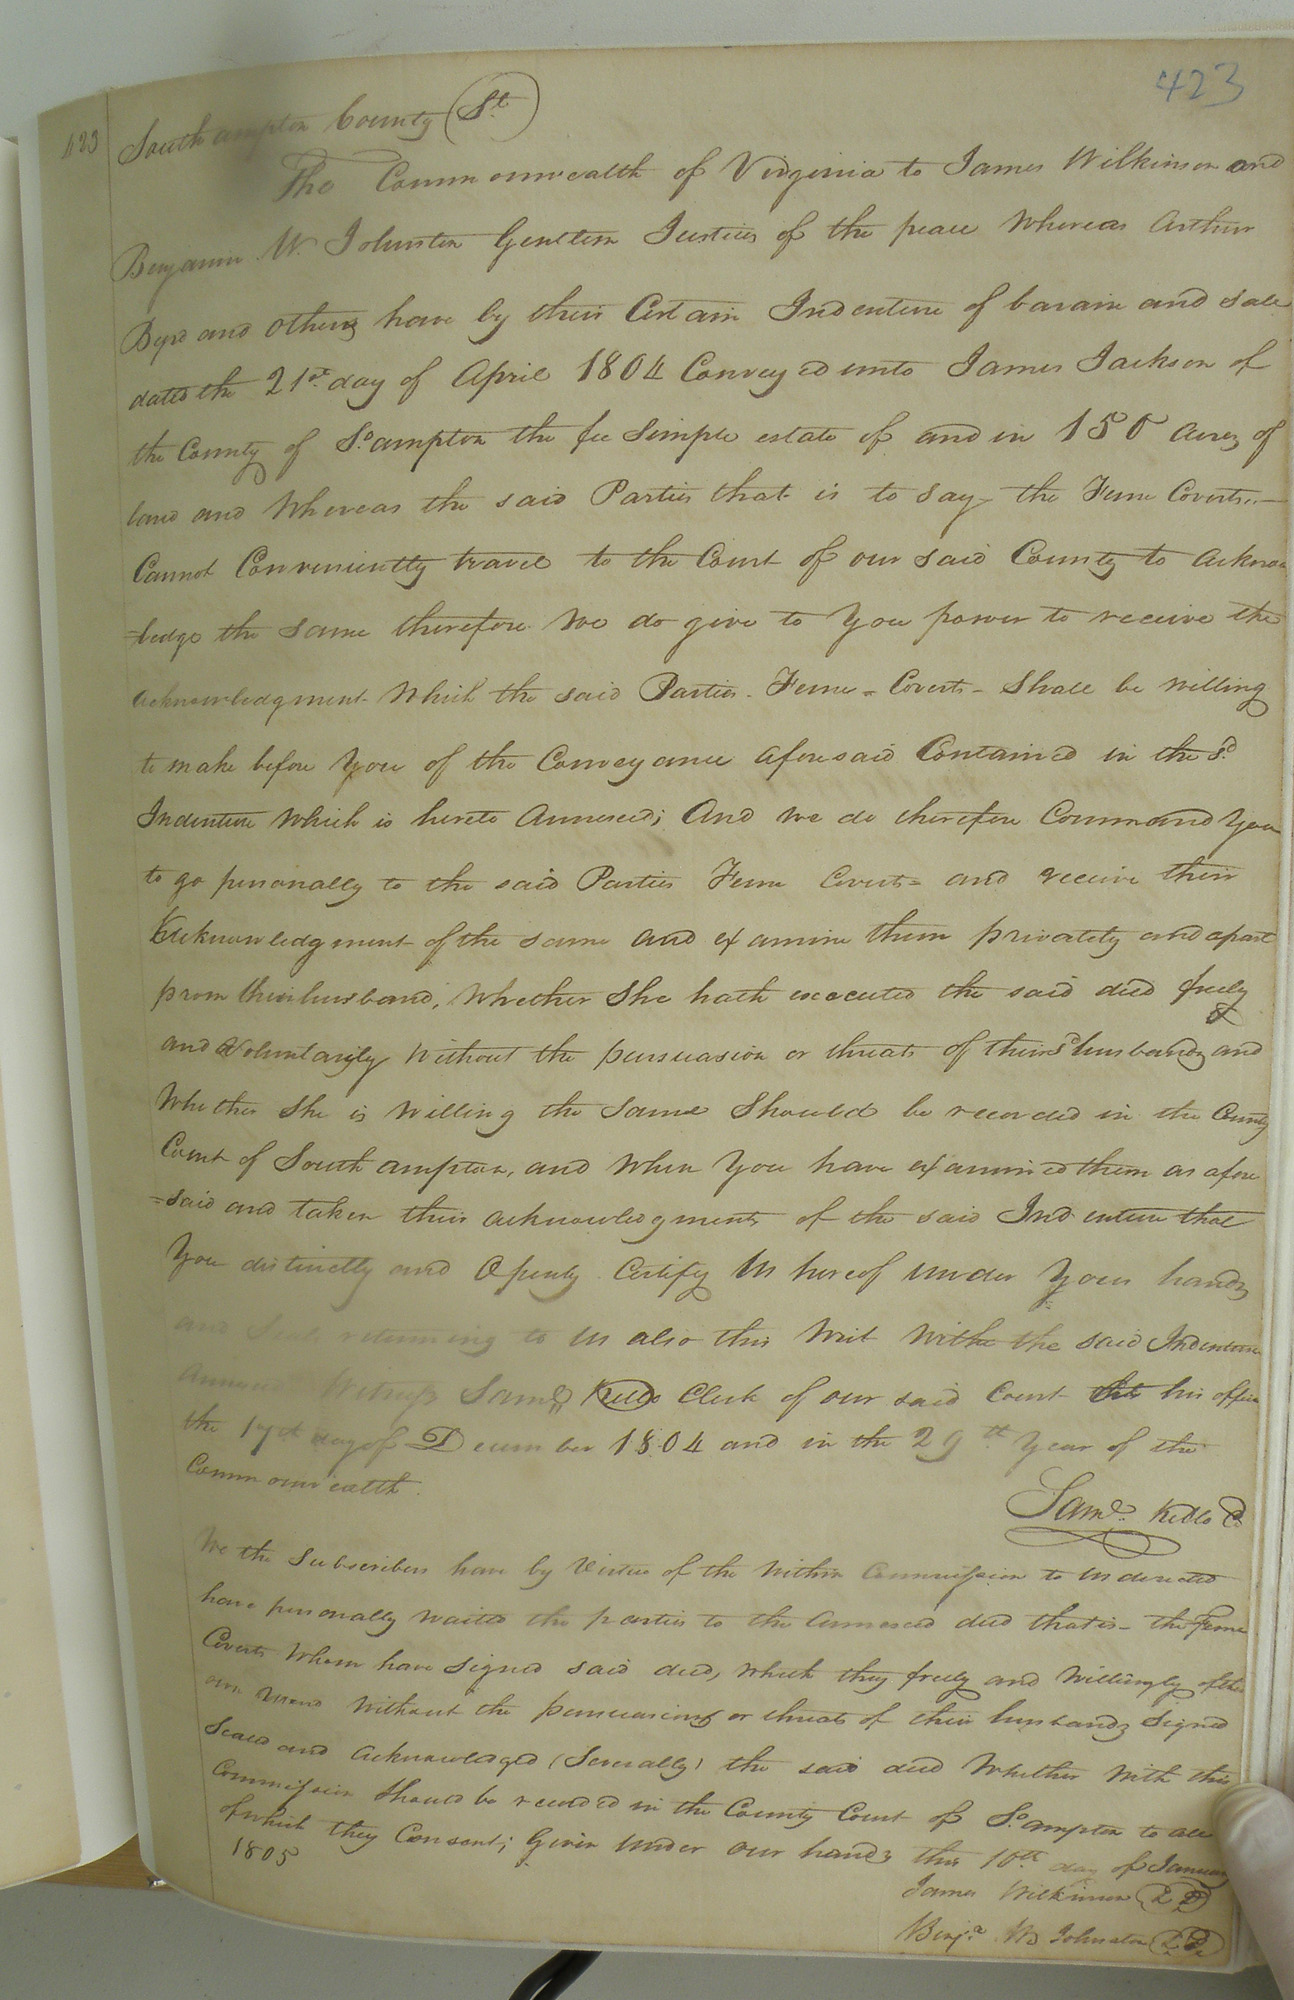 423
423
Southampton County St
The Commonwealth of Virginia to James Wilkinson and
Benjamin W. Johnston Gentlem Justices of the peace Whereas Arthur
Byrd and others have by their Certain Indenture of barain and sale
dated the 21st. day of April 1804 Conveyed unto James Jackson of
the County of So.ampton the fee Simple estate of and in 150 acres of
land and Whereas the said Parties that is to say the Feme Coverts
Cannot Conveniently travel to the Court of our said County to acknow
=ledge the same therefore We do give to You power to receive the
acknowledgment Which the said Parties - Feme = Coverts - Shall be willing
to make before You of the Conveyance aforesaid Contained in the sd.
Indenture Which is hereto Annexed; And we do therefore Command You
to go personally to the said Parties Feme Coverts = and receive their
Acknowledgment of the same and examine them privately and apart
from their husband, Whether She hath executed the said deed freely
and Voluntarily Without the persuasion or threats of their sd husbands and
Whether She is Willing the same Should be recorded in the County
Court of Southampton, and When You have examined them as afore
=said and taken their acknowledgments of the said Indenture that
You distinctly and Openly Certify Us hereof under Your hands
and returning to us also this Writ Withe the said Indenture
annexed Witness Saml. Kello Clerk of our said Court his office
the 17th day of December 1804 and in the 29th Year of the
Commonwealth.
Saml. Kello C
We the Subscribers have by Virtue of the Within Commission to us directed
have personally waited the parties to the annexed deed that is - the Feme
Coverts Whom have Signed said deed, which they freely and Willingly of their
own Without the persuasions or threats of their husbands Signed
Sealed and acknowledged (Severally) the said deed Whether With this
Commission Should be recorded in the County Court of So.ampton to all
of which they Consent; Given Under our hands this 10th day of January
1805
James Wilkinson
Benja. W. Johnston